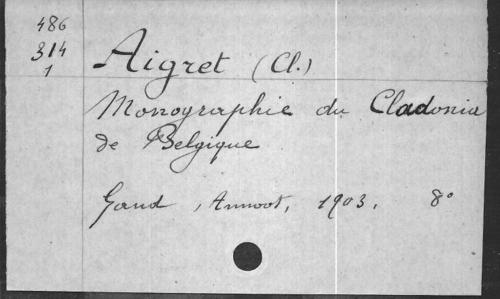 486
314
1
Aigret (Cl.)
Monographie du Cladonia
de Belgique
Gand, Annoot, 1903. 8°